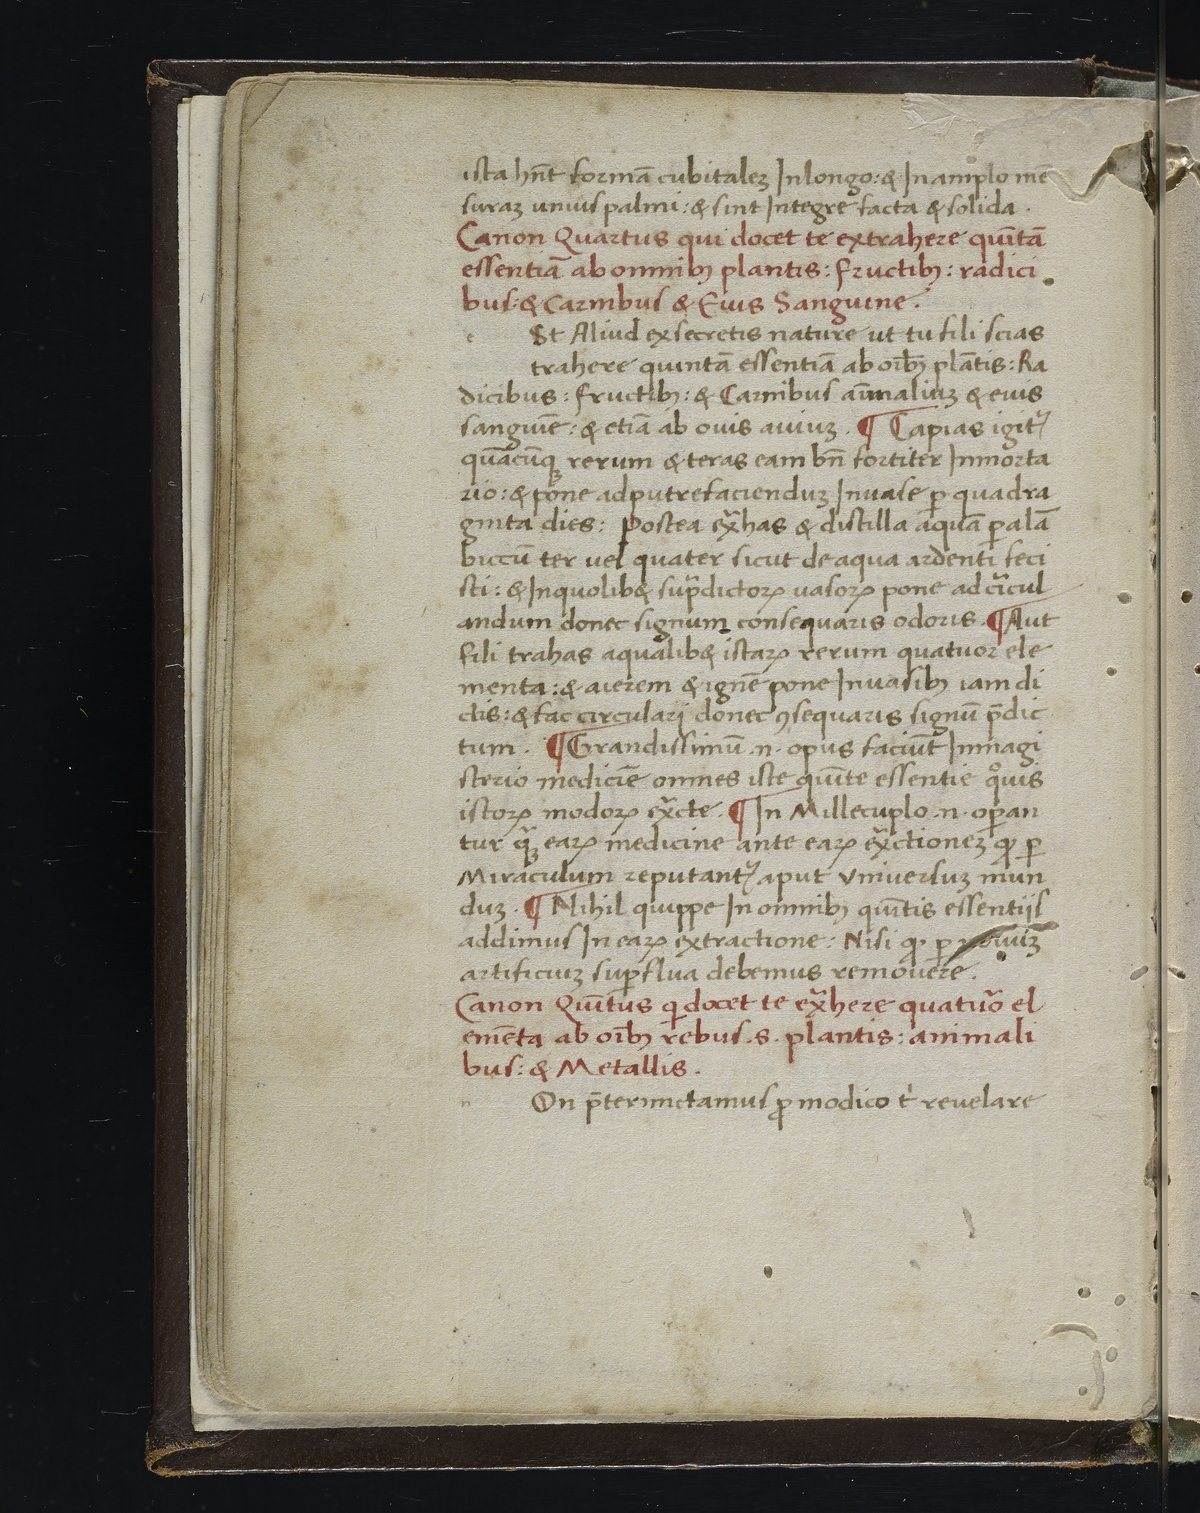 ista hñt formā cubitalez In longo: & In amplo mē
suraz unius palmi: & sint Integre facta & solida.
Canon Quartus qui docet te extrahere quītā
essentiā ab omnibꝫ plantis: fructibꝫ: radici
bus: & Carnibus & Eius Sanguine.
e St Aliud ex secretis nature ut tu fili scias
trahere quintā essentiā ab oībꝫ plātis: Ra
dicibus: fructibꝫ: & Carnibus aīmaliuz & euis
sanguīe: & etiā ab ovis aviuz. ¶ Capias igitᷣ
quācūqꝫ rerum & teras eam bn̄ fortiter In morta
rio: & pone ad putrefacienduz In vase ꝑ quadra
ginta dies: postea exᷓhas & distilla aquā ꝑ alā
biccū ter vel quater sicut de aqua ardenti feci
sti: & In quolibꝫ supᷓdictoꝝ vasoꝝ pone ad cᷓicul
andum donec signum consequaris odoris. ¶ Aut
fili trahas a qualibꝫ istaꝝ rerum quatuor ele
menta: & aierem & ignē pone In vasibꝫ iam di
ctis: & fac circulari donec ꝯsequaris signū p̄dic
tum. ¶ Grandissimū .n. opus faciūt In magi
sterio medicīe omnes iste quīte essentie qᷤuis
istoꝝ modoꝝ exᷓcte. ¶ In Millecuplo .n. oꝑan
tur qᷓꝫ eaꝝ medicine ante eaꝝ exᷓctionez ꝙ ꝑ
Miraculum reputantᷣ aput Universuz mun
duz. ¶ Nihil quippe In omnibꝫ quītis essentijs
addimus In eaꝝ extractione: Nisi ꝙ ꝑ
artificiuz suꝑflua debemus removere.
Canon Quītus qi docet te exᷓhere quatuoͬ el
emēta ab oībꝫ rebus .s. plantis: animali
bus: & Metallis.
n On p̄termictamus ꝓ modico tͥ revelare